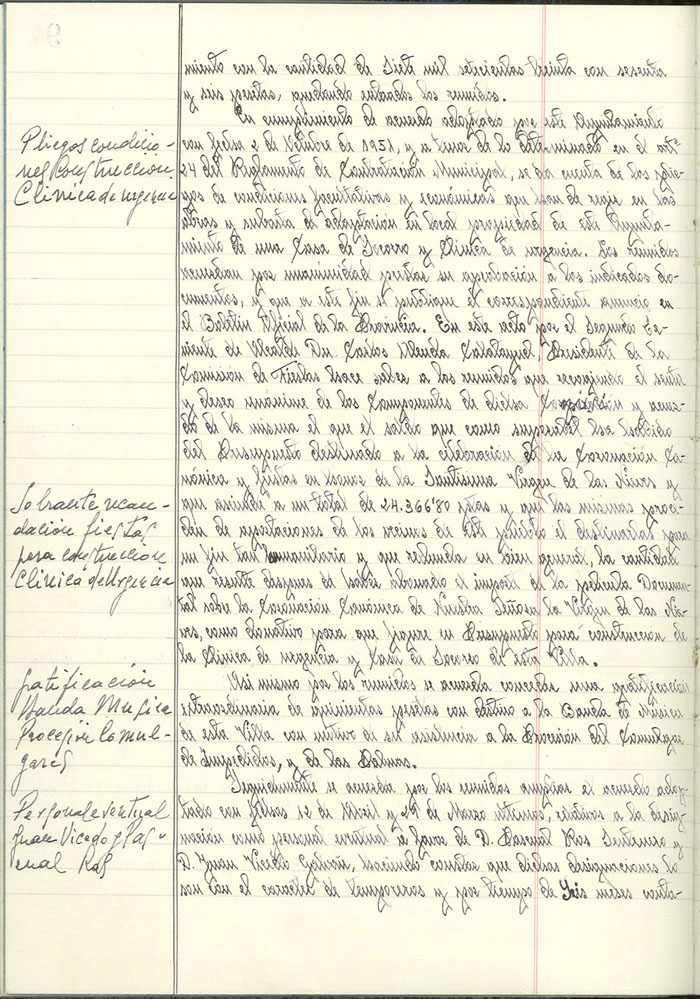 miento con la cantidad de Siete mil setecientas treinta con sesenta
y seis pesetas, quedando enterados los reunidos.
En cumplimiento de acuerdo adoptado por este Ayuntamiento
con fecha 2 de Octubre de 1951, y a tenor de lo determinado en el artº
24 del Reglamento de Contratación Municipal, se da cuenta de los plie-
gos de condiciones facultativas y económicas que han de regir en las
obras y subasta de adaptación en local propiedad de este Ayunta-
miento de una Casa de Socorro y Clínica de urgencia. Los reunidos
acuerdan por unanimidad prestar su aprobación a los indicados do-
cumentos, y que a este fin se publique el correspondiente anuncio en
el Boletín Oficial de la Provincia. En este acto por el Segundo Te-
niente de Alcalde Dn. Carlos Calatayud, Presidente de la
Comisión de Fiestas hace saber a los reunidos que recogiendo el sentir
y deseo unánime de los Componentes de dicha Comisión y acuer-
do de la misma el que el saldo que como superabit ha habido
del Presupuesto destinado a la celebración de la Coronación Ca-
nónica y fiestas en honor de la Santísima Virgen de las Nieves y
que asciende a un total de 24.366'80 ptas y que las mismas proce-
den de aportaciones de los vecinos de este pueblo el destinarlas para
un fin tan humanitario y que redunda en bien general, la cantidad
que resulte despues de haber abonado el importe de la película Documen-
tal sobre la Coronación Canónica de Nuestra Señora la Virgen de las Nie-
ves, como donativo para que figure en Presupuesto para construccion de
la Clínica de urgencia y Casa de Socorro de esta Villa.
Asi mismo por los reunidos se acuerda conceder una gratificación
extraordinaria de quinientas pesetas con destino a la Banda de Música
de esta Villa con motivo de su asistencia a la Procesión del Comulgar
de Impedidos, y de las Palmas.
Seguidamente se acuerda por los reunidos ampliar el acuerdo adop-
tado con fechas 12 de Abril y 29 de Marzo últimos, relativos a la desig-
nación como personal eventual a favor de D. Pascual Ros Sentenero y
D. Juan Vicedo Galvañ, haciendo constar que dichas designaciones lo
son con el caracter de temporeros y por tiempo de Seis meses conta-
Pliegos condicio-
nes Construccion
Clinica de urgencia
Sobrante recau-
dación fiestas
para construccion
Clinica de Urgencia
Gratificación
Banda Musica
Procesión Comul-
gares
Personal eventual
Juan Vicedo y Pas-
cual Ros